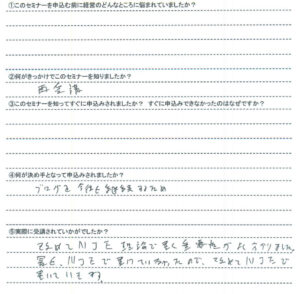 ①このセミナーを申込む前に経営のどんなところに悩まれていましたか？
②何がきっかけでこのセミナーを知りましたか？
再受講
③このセミナーを知ってすぐに申込みされましたか？ すぐに申込みできなかったのはなぜですか？
④何が決め手となって申込みされましたか？
ブログを今後も継続するため
⑤実際に受講されていかがでしたか？
改めて 理論で書く重要性がよく分かりました。
最近、 で書けていなかったので、改めて で
書いていきます。